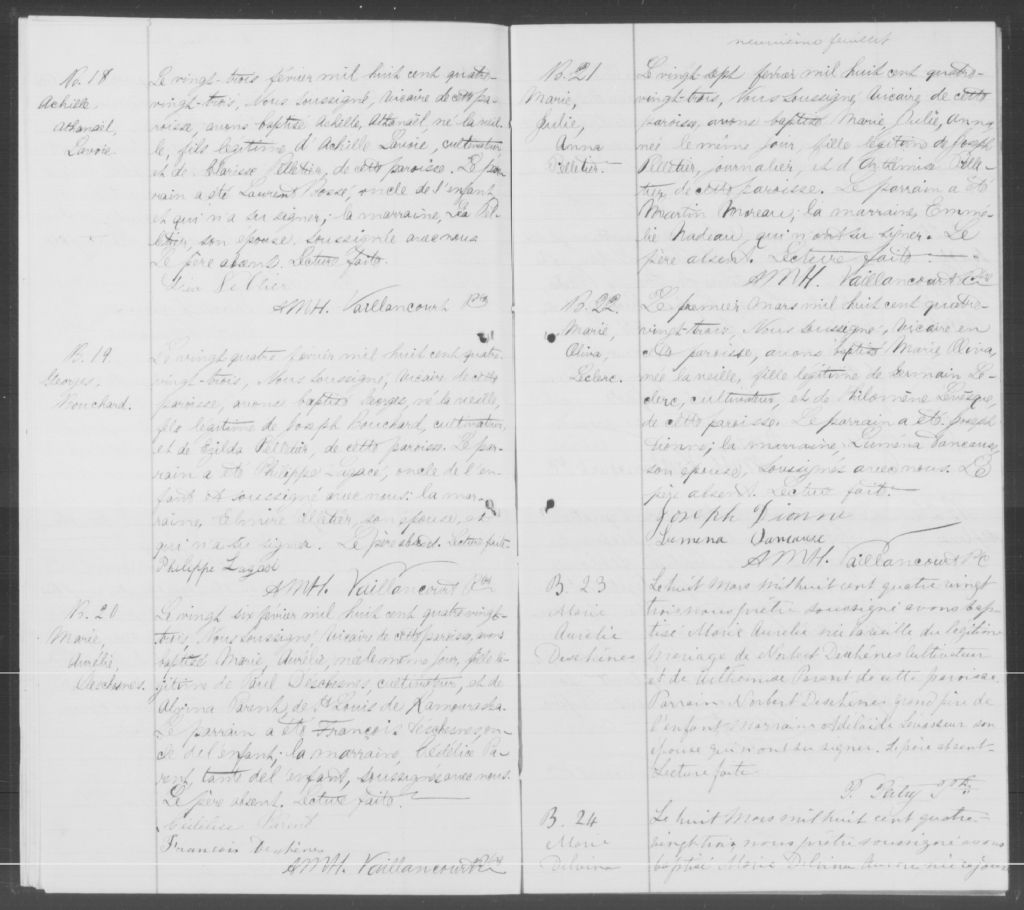 No. 18
Achille,
Athanaël,
Lavoie.
Le vingt-trois février mil huit cent quatre-
vingt-trois, Nous soussigné, Vicaire de cette pa-
roisse, avons baptisé Achille, Athanaël, né la veil-
le, fils légitime d'Achille Lavoie, cultivateur
et de Clarisse Pelletier, de cette paroisse. Le par-
rain a été Laurent, oncle de l'enfant,
et qui n'a su signer; la marraine, Léa Pel-
letier, son épouse, soussignée avec nous
Le père absent. Lecture faite.
AMH. Vaillancourt Ptre
B. 19
Georges,
Bouchard.
Le vingt quatre février mil huit cent quatre-
vingt-trois, Nous soussigné, Vicaire de cette
paroisse, avons baptisé Georges, né la veille,
fils légitime de Joseph Bouchard, cultivateur,
et de Exilda Pelletier, de cette paroisse. Le par-
rain a été Philippe Lagacé, oncle de l'en-
fant et soussigné avec nous; la mar-
raine, Pelletier, son épouse, et
qui n'a su signer. Le père absent. Lecture faite.
Philippe Lagacé
AMH. Vaillancourt Ptre
B. 20
Marie,
Aurélie,
Deschesnes.
Le vingt six février mil huit cent quatre vingt-
trois, Nous soussigné Vicaire de cette paroisse, avons
baptisé Marie, Aurélie, née le même jour, fille lé-
gitime de Paul Deschesnes, cultivateur, et de
Alvina Parent, de St Louis de Kamouraska.
Le parrain a été François Deschesnes, on-
cle de l'enfant; la marraine, Cédélice Pa-
rent, tante de l'enfant, soussignés avec nous.
Le père absent. Lecture faite.
Cédélice Parent
Francois Deschènes
AMH. Vaillancourt Ptre
neuvième feuillet
B. 21
Marie,
Julie,
Anna
Pelletier.
Le vingt sept février mil huit cent quatre-
vingt-trois, Nous soussigné, Vicaire de cette
paroisse, avons baptisé Marie, Julie, Anna
née le même jour, fille légitime de Joseph
Pelletier, journalier, et d'Arthémise Pelle-
tier, de cette paroisse. Le parrain a été
Martin Moreau; la marraine, Emmé-
lie Nadeau, qui n'ont su signer. Le
père absent. Lecture faite.
AMH. Vaillancourt Ptre
B. 22
Marie,
Oliva,
Leclerc.
Le premier Mars mil huit cent quatre-
vingt-trois, Nous soussigné, Vicaire en
cette paroisse, avons baptisé Marie Oliva,
née la veille, fille légitime de Germain Le-
clerc, cultivateur, et de Philomène Levesque,
de cette paroisse. Le parrain a été Joseph
Dionne; la marraine, Luména Vancause,
son épouse, soussignés avec nous. Le
père absent. Lecture faite.
Joseph Dionne
Lumena Vancause
AMH. Vaillancourt Ptre
B. 23
Marie
Aurélie
Deschénes
Le huit Mars mil huit cent quatre vingt
trois nous prêtre soussigné avons bap-
tisé Marie Aurelie née la veille du légitime
mariage de Norbert Deschênes Cultivateur
et de Arthemise Parent de cette paroisse.
Parrain Norbert Deschenes grand père de
l'enfant Marraine Adelaide Levasseur son
epouse qui n'ont su signer. Le père absent-
Lecture faite
Ptre
B. 24
Marie
Delvina
Le huit Mars mil huit cent quatre-
vingt-trois nous prêtre soussigné avons
baptisé Marie Delvina Aurore née ce jour